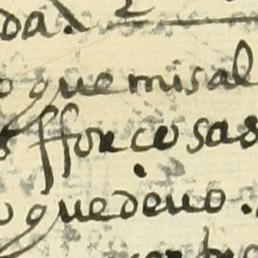 da.
o que mis al
fforçosas
o que devo.